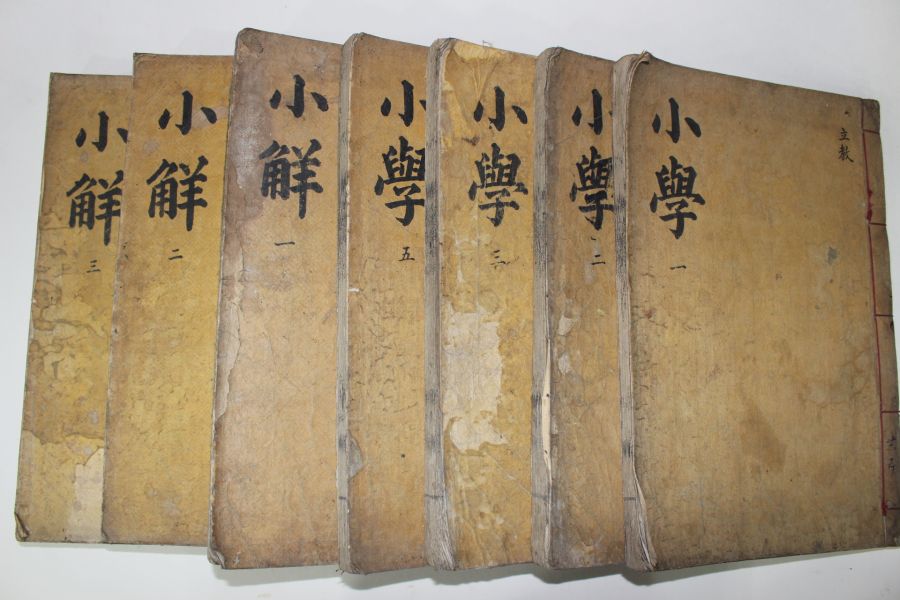 立教
小學 一
小學 二
小學 三
小學 五
小觧 一
小觧 二
小觧 三